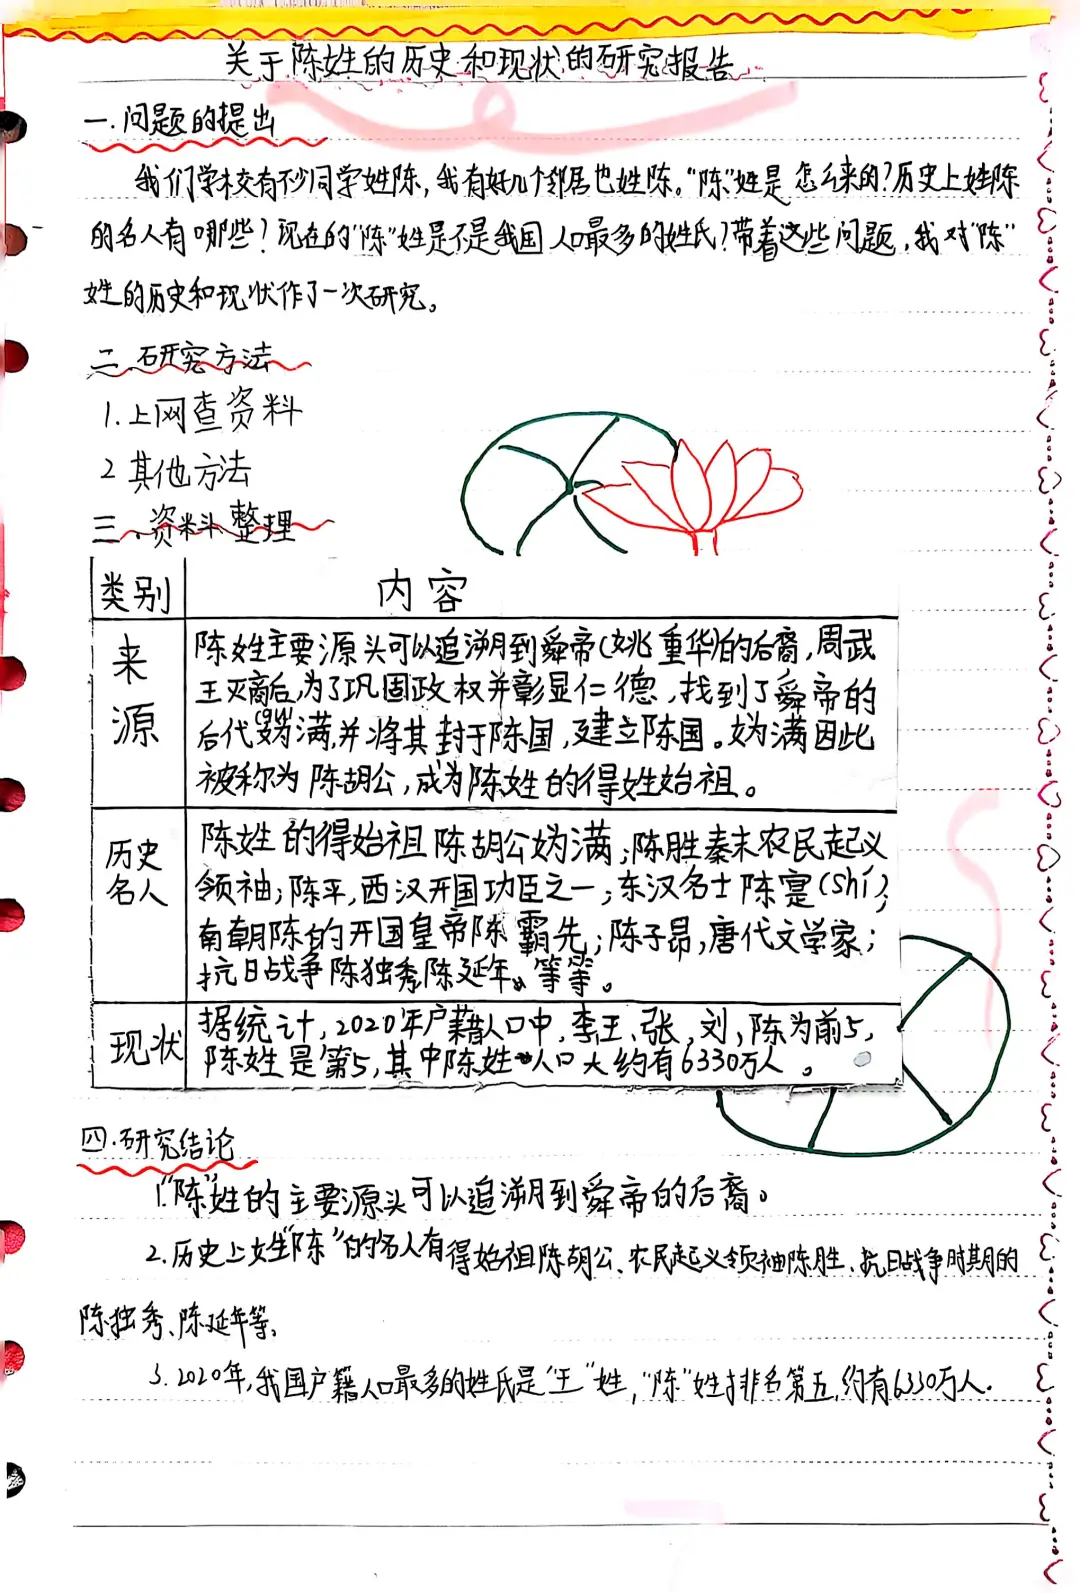 关于陈姓的历史和现状的研究报告
一.问题的提出
我们学校有不少同学姓陈，我有好几个邻居也姓陈。“陈”姓是怎么来的？历史上姓陈
的名人有哪些？现在的“陈”姓是不是我国人口最多的姓氏？带着这些问题，我对“陈”
姓的历史和现状作了一次研究。
二.研究方法
1.上网查资料
2 其他方法
三.资料整理
类别 内容
来源 陈姓主要源头可以追溯到舜帝(姚重华)的后裔，周武
王灭商后，为了巩固政权并彰显仁德，找到了舜帝的
后代妫(guī)满，并将其封于陈国，建立陈国。妫满因此
被称为陈胡公，成为陈姓的得姓始祖。
历史名人 陈姓的得始祖陈胡公妫满；陈胜秦末农民起义
领袖；陈平，西汉开国功臣之一；东汉名士陈寔(shí)；
南朝陈的开国皇帝陈霸先；陈子昂，唐代文学家；
抗日战争陈独秀陈延年、等等。
现状 据统计，2020年户籍人口中，李王、张、刘、陈为前5，
陈姓是第5，其中陈姓人口大约有6330万人。
四.研究结论
1.“陈”姓的主要源头可以追溯到舜帝的后裔。
2.历史上姓“陈”的名人有得始祖陈胡公、农民起义领袖陈胜、抗日战争时期的
陈独秀、陈延年等，
3.2020年，我国户籍人口最多的姓氏是“王”姓，“陈”姓排名第五，约有6330万人.